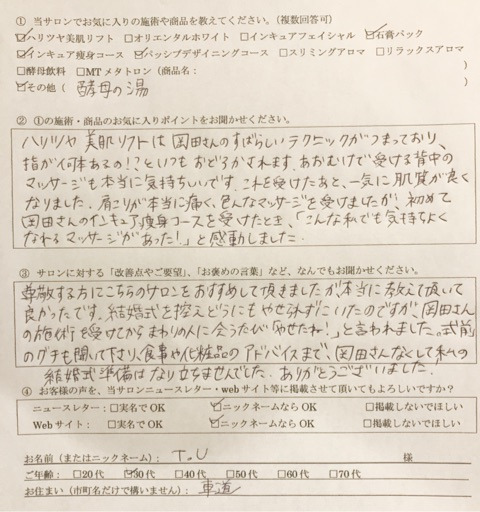 ① 当サロンでお気に入りの施術や商品を教えてください。(複数回答可)
☑ハリツヤ美肌リフト □オリエンタルホワイト □インキュアフェイシャル ☑石膏パック
☑インキュア痩身コース ☑パッシブデザイニングコース □スリミングアロマ □リラックスアロマ
□酵母飲料 □MTメタトロン(商品名: )
☑その他( 酵母の湯 )
② ①の施術・商品のお気に入りポイントをお聞かせください。
ハリツヤ美肌リフトは岡田さんのすばらしいテクニックがつまっており、
指が何本あるの!?といつもおどろかされます。あおむけで受ける背中の
マッサージも本当に気持ちいいです。これを受けたあと、一気に肌質が良く
なりました。肩こりが本当に痛く、色んなマッサージを受けましたが、初めて
岡田さんのインキュア痩身コースを受けたとき、「こんな私でも気持ちよく
なれるマッサージがあった!」と感動しました。
③ サロンに対する「改善点やご要望」、「お褒めの言葉」など、なんでもお聞かせください。
尊敬する方にこちらのサロンをおすすめして頂きましたが、本当に教えて頂いて
良かったです。結婚式を控えどうにもやせられずにいたのですが、岡田さん
の施術を受けてからまわりの人に会うたび「やせたね!」と言われました。式前
のグチも聞いて下さり、食事や化粧品のアドバイスまで、岡田さんなくして私の
結婚式準備はなり立ちませんでした。ありがとうございました!
④ お客様の声を、当サロンニュースター・webサイト等に掲載させて頂いてもよろしいですか?
ニュースレター:□実名でOK ☑ニックネームならOK □掲載しないでほしい
Webサイト:□実名でOK ☑ニックネームならOK □掲載しないでほしい
お名前(またはニックネーム): T.U 様
ご年齢:□20代 ☑30代 □40代 □50代 □60代 □70代
お住まい(市町名だけで構いません): 車道